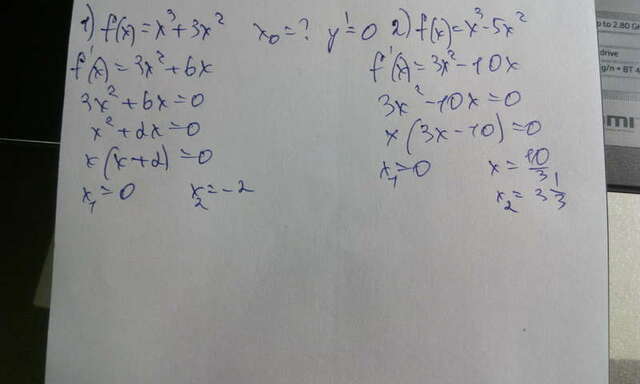 1) f(x)=x³+3x² x₀=? y'=0
f'(x)=3x²+6x
3x²+6x=0
x²+2x=0
x(x+2)=0
x₁=0 x₂=-2
2) f(x)=x³-5x²
f'(x)=3x²-10x
3x²-10x=0
x(3x-10)=0
x₁=0 x=10/3
x₂=3 1/3
to 2.80 G
drive
g/n + BT 4
mi